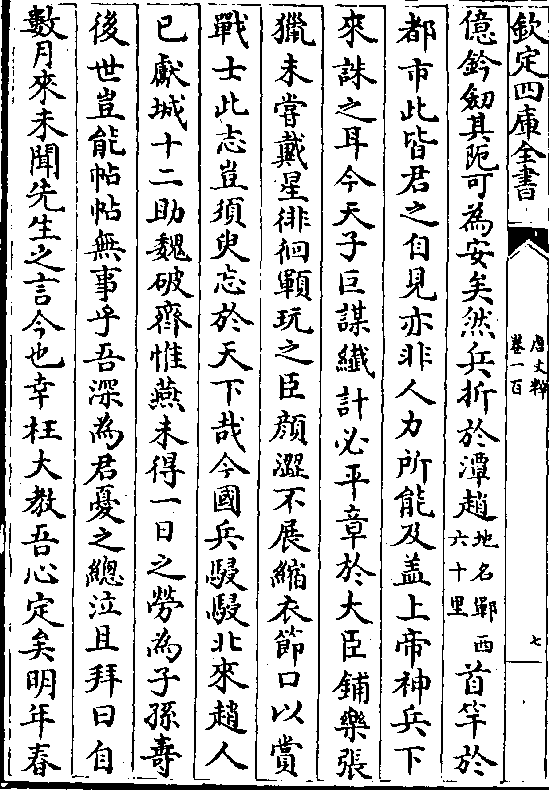 欽定四庫全書
唐文粹
卷一百
七
億鈐劒其阨可為安矣然兵折於潭趙地名鄴西六十里首竿於
都市此皆君之自見亦非人力所能及盖上帝神兵下
來誅之耳今天子巨謀纎計必平章於大臣鋪樂張
獵未嘗戴星徘徊顒玩之臣顔澀不展縮衣節口以賞
戰士此志豈須臾忘於天下哉今國兵駸駸北來趙人
已獻城十二助魏破齊惟燕未得一日之勞為子孫壽
後世豈能帖帖無事乎吾深為君憂之總泣且拜曰自
數月來未聞先生之言今也幸枉大教吾心定矣明年春